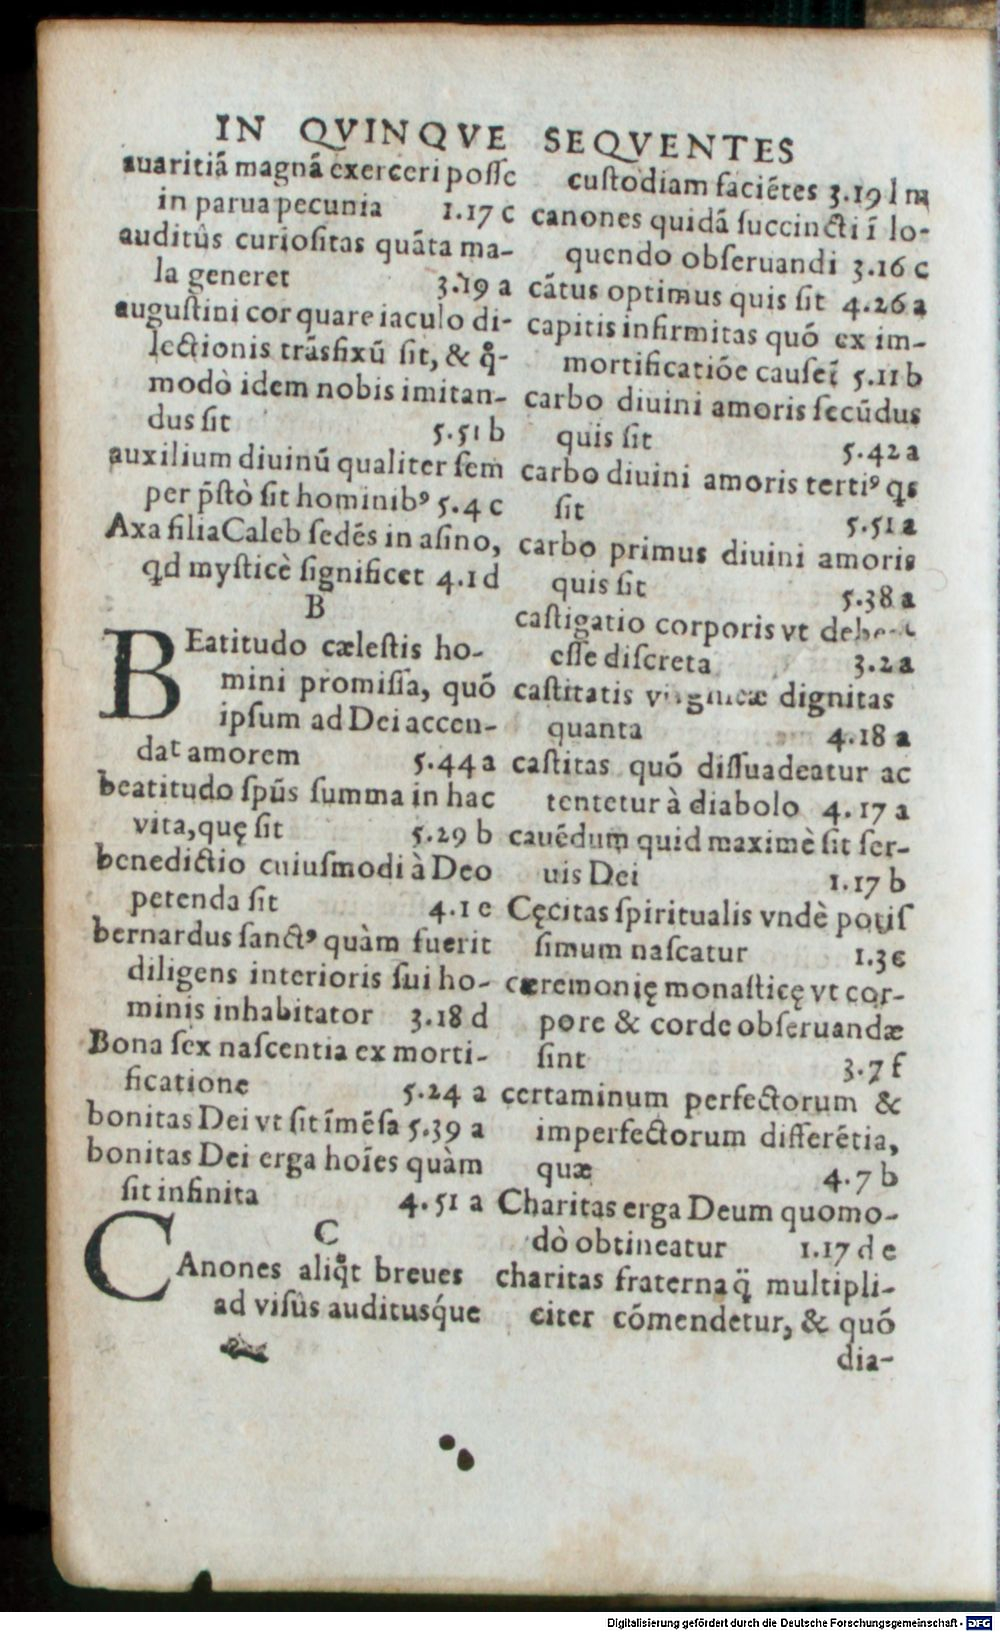 IN QVINQVE SEQVENTES
auaritiã magnã exerceri posse
in parua pecunia 1.17 c
auditûs curiositas quãta ma-
la generet 3.19 a
augustini cor quare iaculo di-
lectionis trãsfixũ sit, & q̊-
modò idem nobis imitan-
dus sit 5.51 b
auxilium diuinũ qualiter sem
per p̃stò sit hominibꝰ 5.4 c
Axa filia Caleb sedẽs in asino,
qd mysticè significet 4.1 d
B
BEatitudo cælestis ho-
mini promissa, quõ
ipsum ad Dei accen-
dat amorem 5.44 a
beatitudo spũs summa in hac
vita, quę sit 5.29 b
benedictio cuiusmodi à Deo
petenda sit 4.1 e
bernardus sanctꝰ quàm fuerit
diligens interioris sui ho-
minis inhabitator 3.18 d
Bona sex nascentia ex morti-
ficatione 5.24 a
bonitas Dei vt sit ĩmẽsa 5.39 a
bonitas Dei erga hoĩes quàm
sit infinita 4.51 a
C
CAnones aliq̊t breues
ad visûs auditusq́ue
custodiam faciẽtes 3.19 l m
canones quidã succincti ĩ lo-
quendo obseruandi 3.16 c
cãtus optimus quis sit 4.26 a
capitis infirmitas quõ ex im-
mortificatiõe causet̃ 5.11 b
carbo diuini amoris secũdus
quis sit 5.42 a
carbo diuini amoris tertiꝰ qs
sit 5.51 a
carbo primus diuini amoris
quis sit 5.38 a
castigatio corporis vt
esse discreta 3.2 a
castitatis dignitas
quanta 4.18 a
castitas quõ dissuadeatur ac
tentetur à diabolo 4.17 a
cauẽdum quid maximè sit ser-
uis Dei 1.17 b
Cęcitas spiritualis vndè potis
simum nascatur 1.3 e
cæremonię monasticę vt cor-
pore & corde obseruandæ
sint 3.7 f
certaminum perfectorum &
imperfectorum differẽtia,
quæ 4.7 b
Charitas erga Deum quomo-
dò obtineatur 1.17 d e
charitas fraterna q̃ multipli-
citer cõmendetur, & quõ
dia-
Digitalisierung gefördert durch die Deutsche Forschungsgemeinschaft - DFG